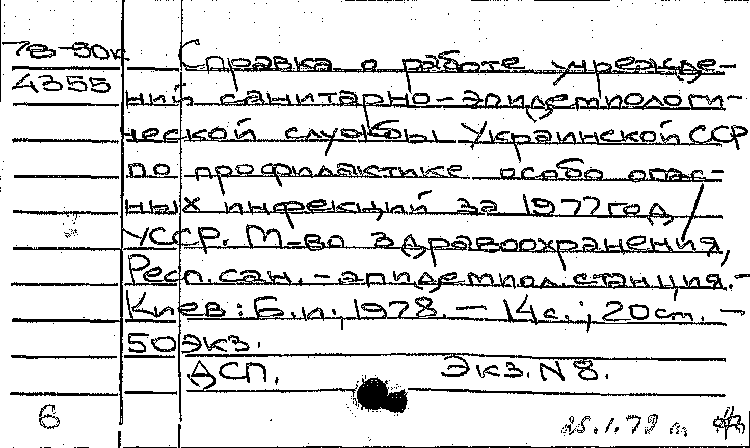 78-80к Справка о работе учрежде-
4355 ний санитарно-эпидемиологи-
ческой службы Украинской ССР
по профилактике особо опас-
ных инфекций за 1977 год /
УССР. М-во здравоохранения,
Респ. сан.-эпидемиол. станция. -
Киев: Б.и., 1978. - 14 с.; 20 см. -
50 экз.
ДСП. Экз. N 8.
6 25.1.79